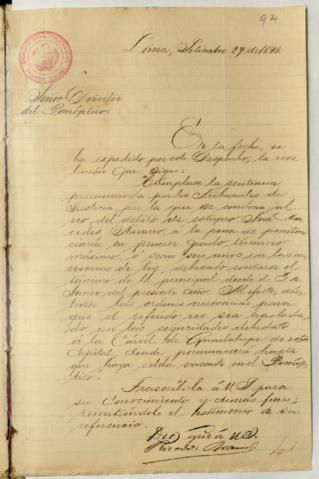 92
Lima, Setiembre 27 de 189
Señor Director
del Panóptico.
En la fecha, se
ha expedido por este Despacho, la reso
lucion que sigue:
"Cúmplase la sentencia
pronunciada por los Tribunales de
Justicia por la que se condena al
reo del delito de estupro José
cedes Alvaro á la pena de peniten
ciaría en primer grado, término
máximo ó sean seis años con las ac
cesorias de ley, debiendo contarse el
término de la principal desde el
de del presente año. Al efecto, díc
tense las órdenes necesarias para
que el referido reo sea traslada
do con las seguridades debidas
á la Cárcel de Guadalupe de esta
Capital, donde permanecerá hasta
que haya celda vacante en el Panóp
tico".
Trascríbola á US. para
su conocimiento y demás fines,
remitiéndole el testimonio de su
referencia.
Dios gue á US.
Ricardo